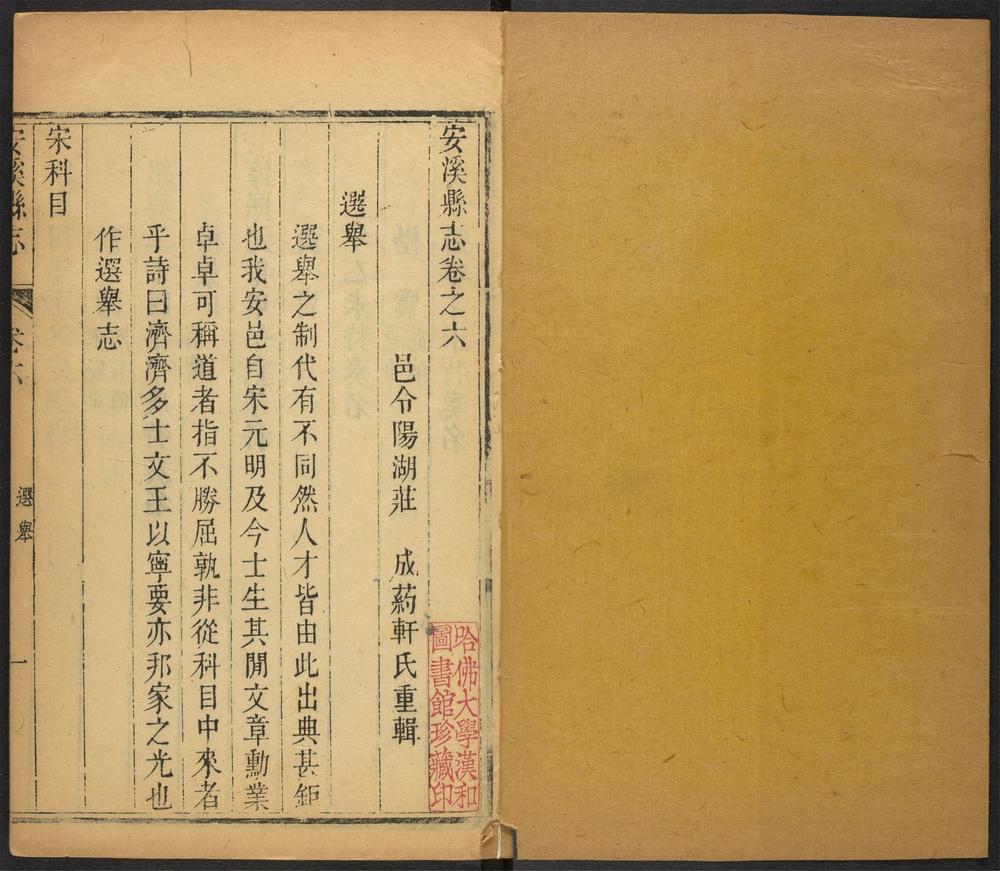 安溪縣志卷之六
邑令陽湖莊　成葯軒氏重輯
選舉
選舉之制代有不同然人才皆由此出典甚鉅
也我安邑自宋元明及今士生其閒文章勳業
卓卓可稱道者指不勝屈孰非從科目中來者
乎詩曰濟濟多士文王以寧要亦邦家之光也
作選舉志
宋科目
安溪縣志
卷六
選舉
一
哈佛大學漢和
圖書館珍藏印